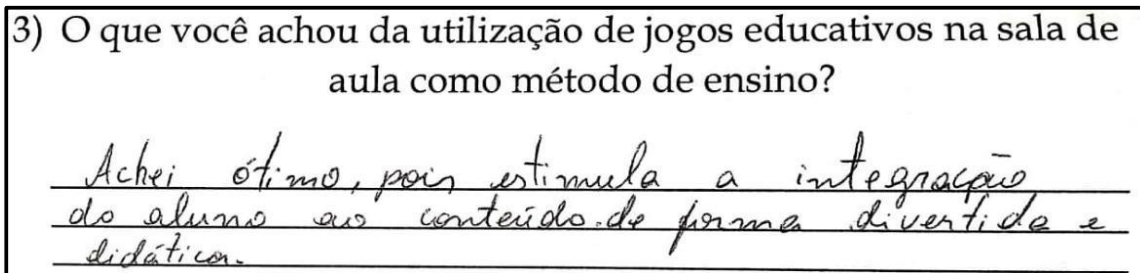 3) O que você achou da utilização de jogos educativos na sala de
aula como método de ensino?
Achei ótimo, pois estimula a integração
do aluno ao conteúdo.de forma divertida e
didática.